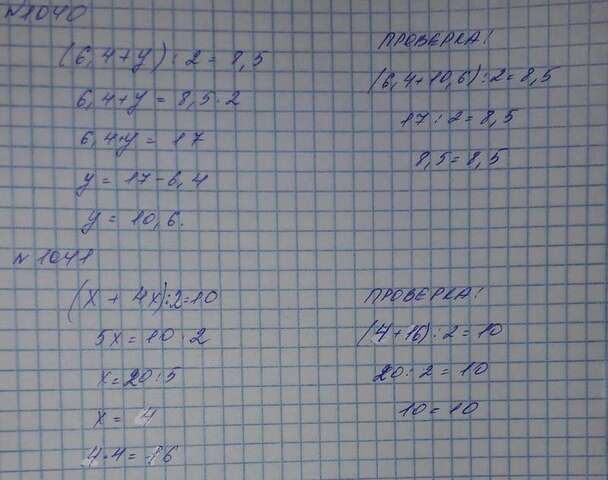 N1040
(6,4+y):2=8,5
6,4+y=8,5·2
6,4+y=17
y=17-6,4
y=10,6.
ПРОВЕРКА!
(6,4+10,6):2=8,5
17:2=8,5
8,5=8,5
N1041
(x+4x):2=10
5x=10·2
x=20:5
x=4
4·4=16
ПРОВЕРКА!
(4+16):2=10
20:2=10
10=10